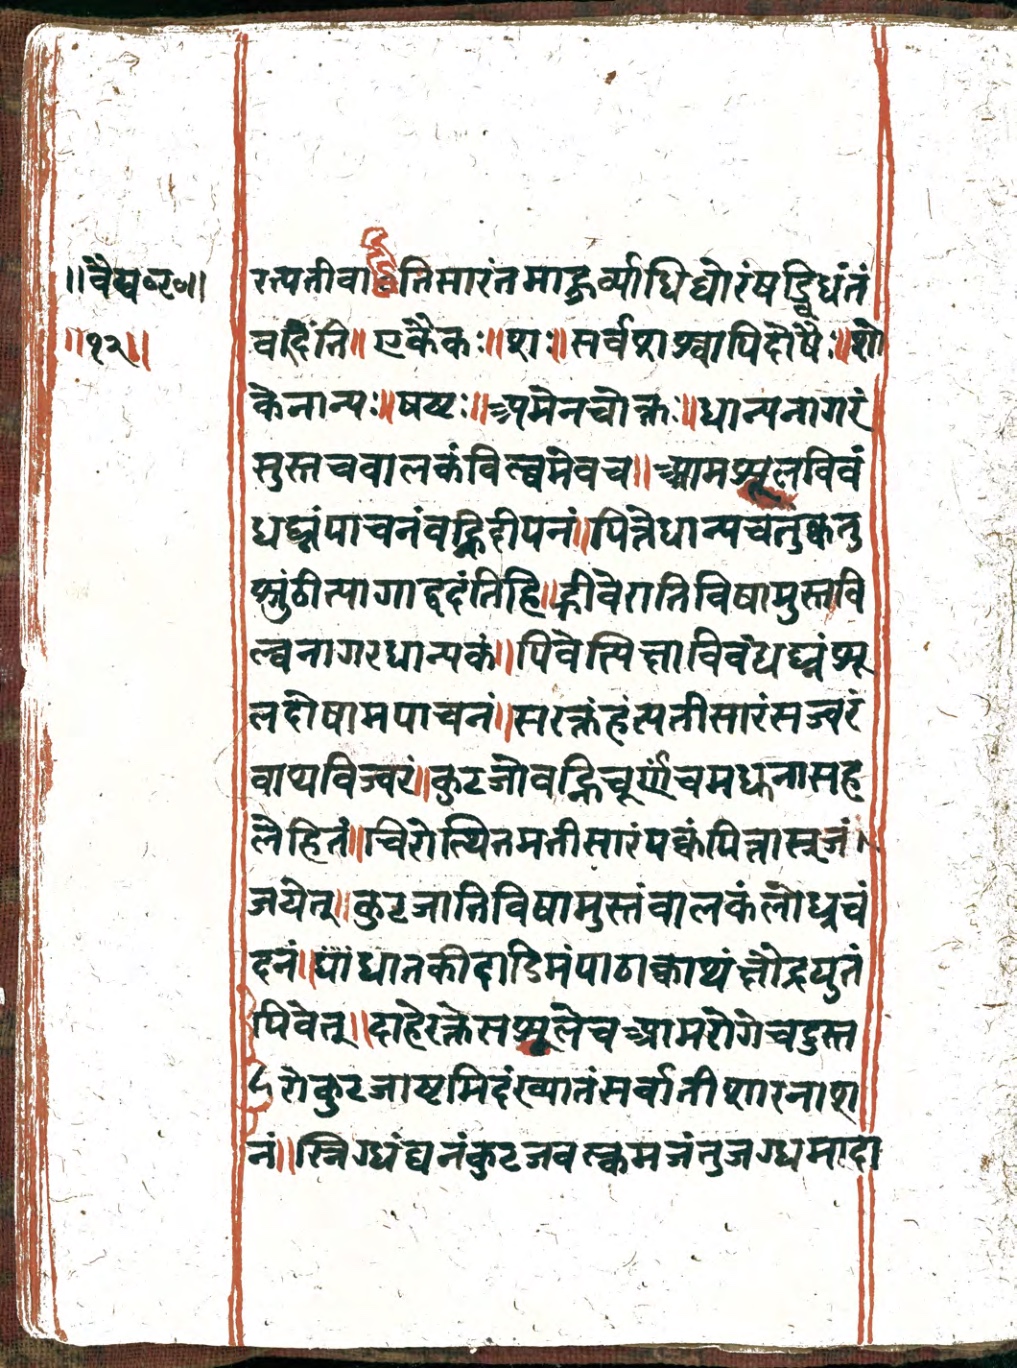 ॥वैद्यव२ण॥
॥१२॥
रत्यतीवाऽतिसारंतमाहुर्व्याधिघोरंषड्विधंतं
वदिंति॥एकैकः॥शः॥सर्वशश्चापिदोषैः॥शो
केनान्यः॥षष्टः॥अमेनचोक्तः॥धान्यनागरं
मुस्तचवालकंवित्वमेवच॥आमशूलविवं
धघ्नंपाचनंवह्निदीपनं॥पित्तेधान्यचतुष्कतु
शुंठीत्यागाद्वदंतिहि॥ह्रीवेरातिविषामुस्तवि
ल्वनागरधान्यकं॥पिवेत्पित्ताविवंधघ्नंशू
लदोषामपाचनं॥सरक्तंहंत्यतीसारंसज्वरं
वाथविज्वरं॥कुटजोवह्निचूर्णंचमधुनासह
लेहितं॥चिरोत्थितमतीसारंपक्वंपित्तास्त्रजं
जयेत्॥कुटजातिविषामुस्तंवालकंलोध्रचं
दनं॥धांधातकीदाडिमंपाठाक्वाथंक्षौद्रयुतं
पिवेत्॥दाहेरक्तेसशूलेचआमरोगेचदुस्त
रोकुटजाष्टमिदंख्यातंसर्वातीशारनाश
नं॥स्निग्धंघनंकुटजवल्कमजंतुजग्धमादा